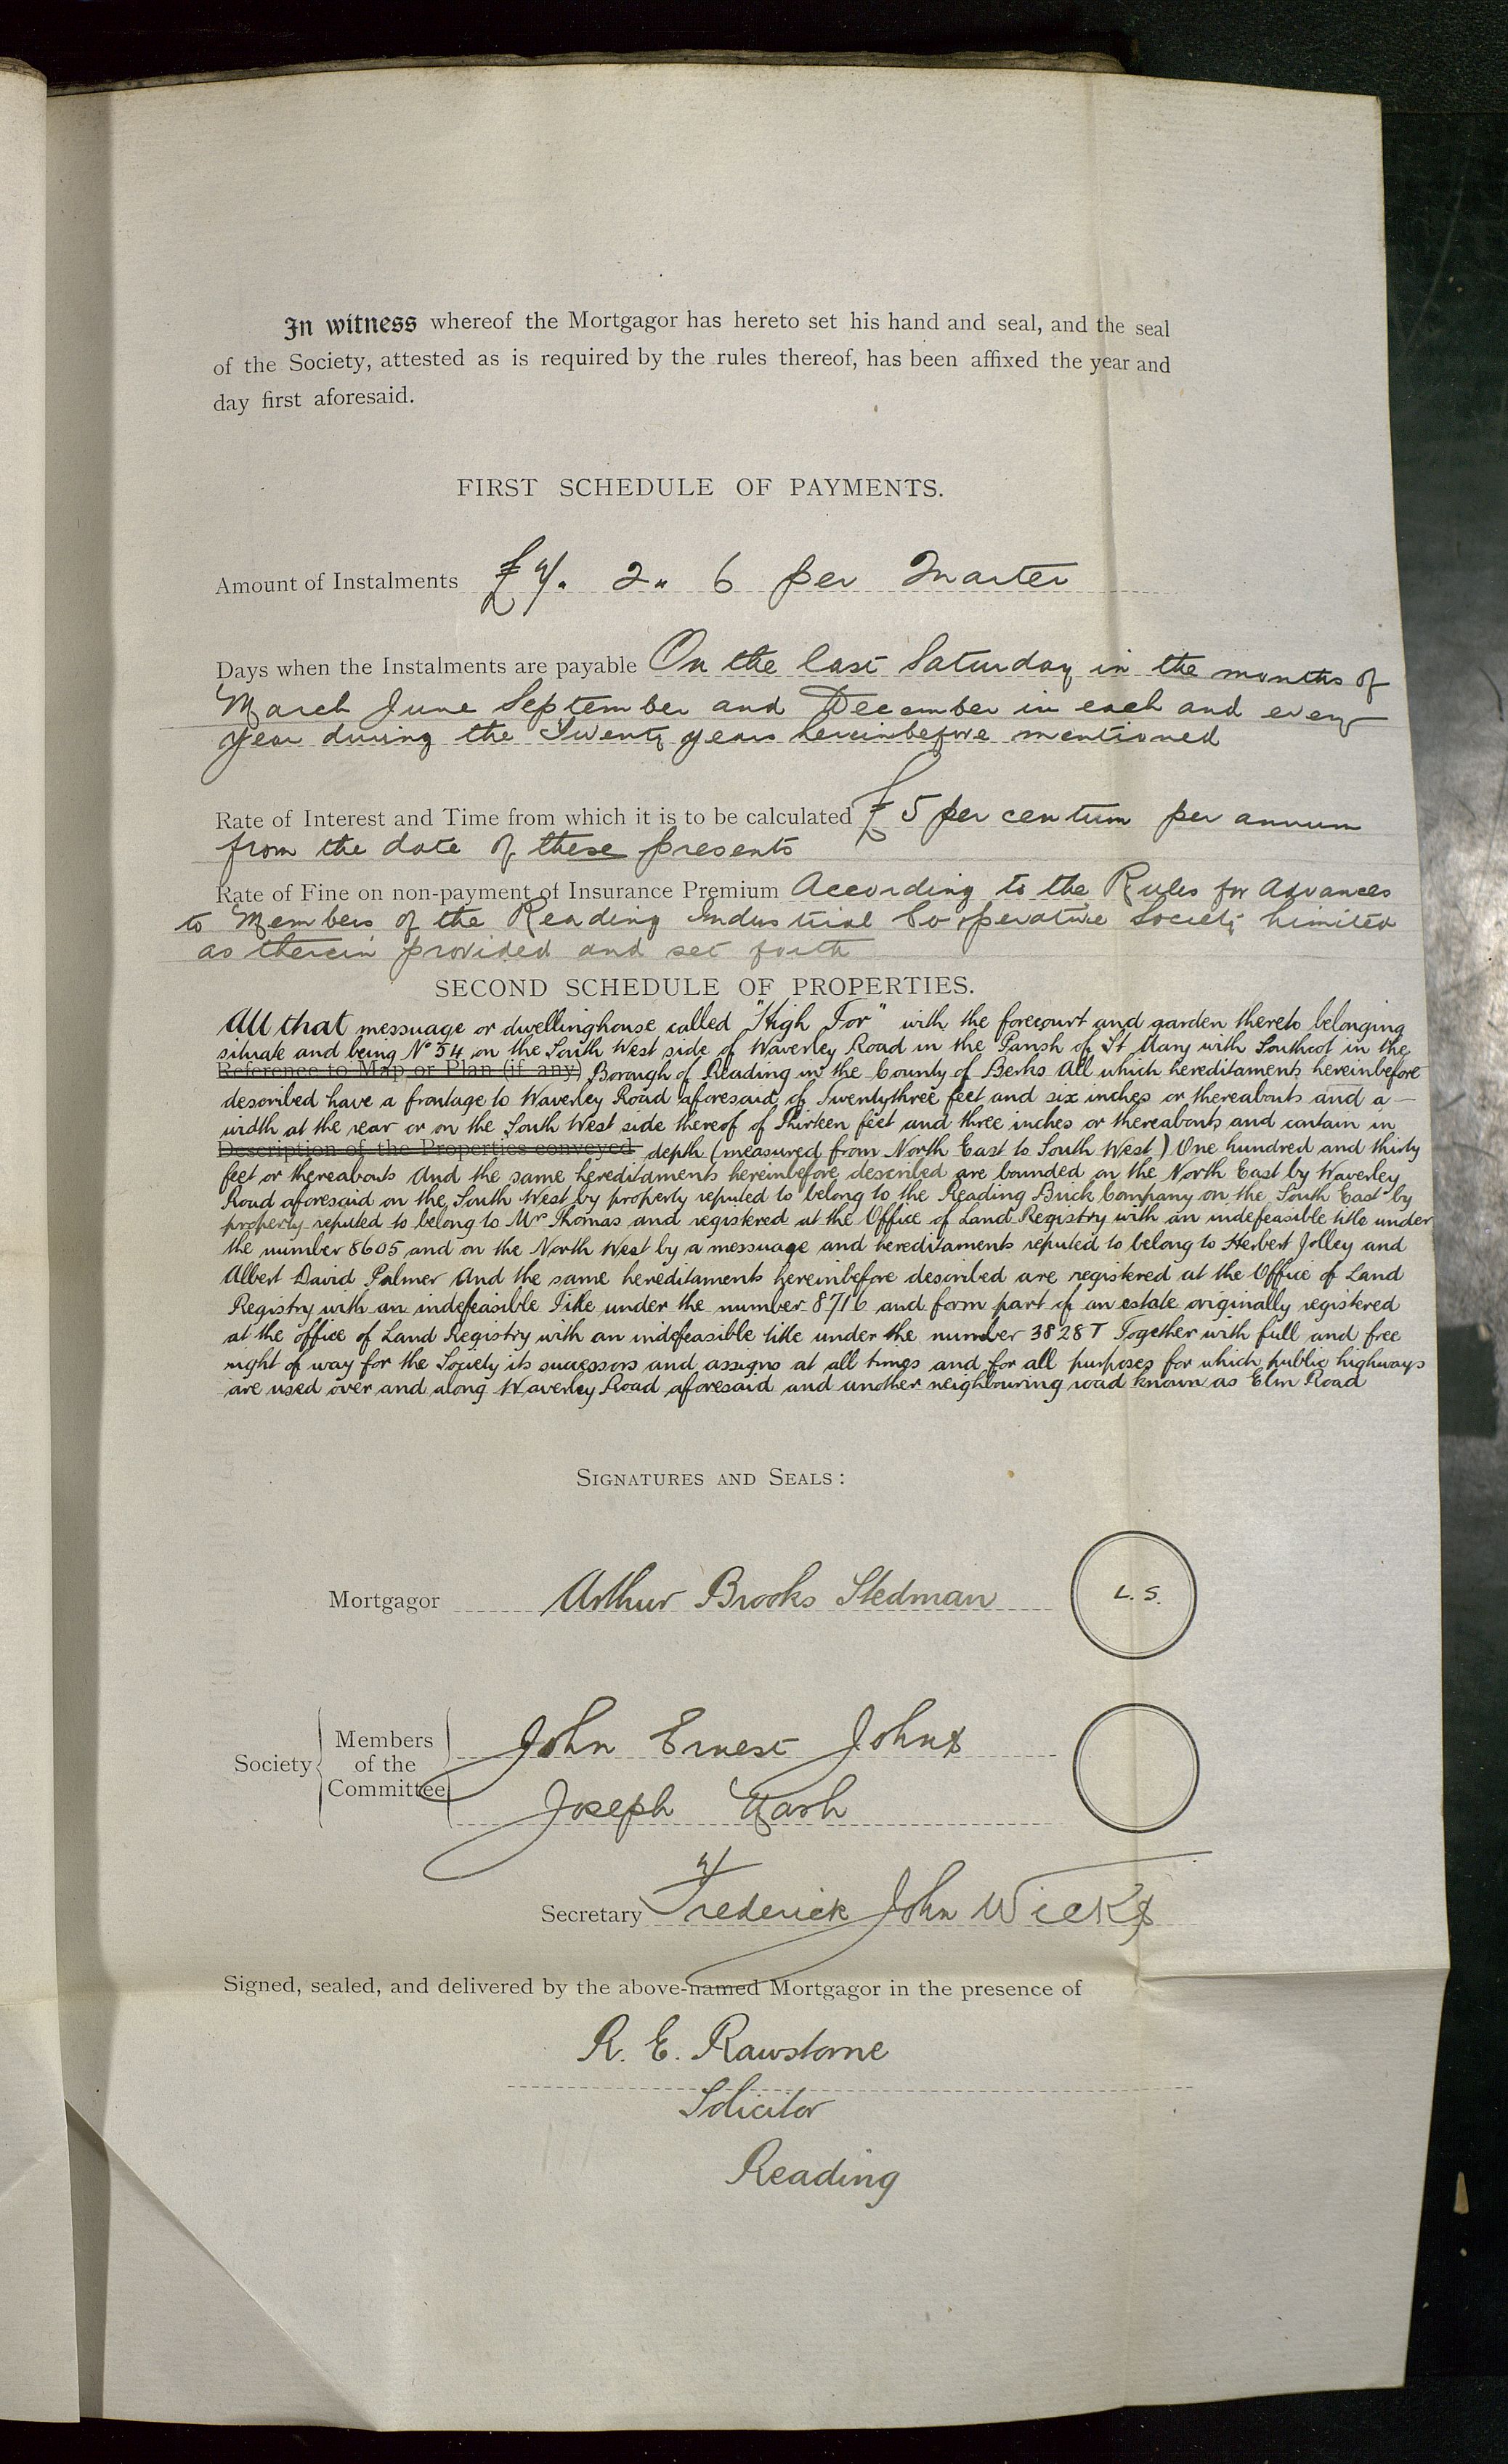 In witness whereof the Mortgagor has hereto set his hand and seal, and the seal
of the Society, attested as is required by the rules thereof, has been affixed the year and
day first aforesaid.
FIRST SCHEDULE OF PAYMENTS.
Amount of Instalments £4. 2" 6 per Quarter
Days when the Instalments are payable On the last Saturday in the months of
March June September and December in each and every
year during the Twenty years hereinbefore mentioned
Rate of Interest and Time from which it is to be calculated £5 per centum per annum
from the date of these presents
Rate of Fine on non-payment of Insurance Premium According to the Rules for Advances
to Members of the Reading Industrial Co operative Society Limited
as therein provided and set forth
SECOND SCHEDULE OF PROPERTIES.
All that messuage or dwellinghouse called "High Tor" with the forecourt and garden thereto belonging
situate and being No 54 on the South West side of Waverley Road in the Parish of St Mary with Southcot in the
Reference to Map or Plan (if any) Borough of Reading in the County of Berks All which hereditaments hereinbefore
described have a frontage to Waverley Road aforesaid of Twentythree feet and six inches or thereabouts and a
width at the rear or on the South West side thereof of Thirteen feet and three inches or thereabouts and contain in
Description of the Properties conveyed depth (measured from North East to South West) One hundred and thirty
feet or thereabouts And the same hereditaments hereinbefore described are bounded on the North East by Waverley
Road aforesaid on the South West by property reputed to belong to the Reading Brick Company on the South East by
property reputed to belong to Mrs Thomas and registered at the Office of Land Registry with an indefeasible title under
the number 8605 and on the North West by a messuage and hereditaments reputed to belong to Herbert Jolley and
Albert David Palmer And the same hereditaments hereinbefore described are registered at the Office of Land
Registry with an indefeasible Title under the number 8716 and form part of an estate originally registered
at the office of Land Registry with an indefeasible title under the number 3828T Together with full and free
right of way for the Society its successors and assigns at all times and for all purposes for which public highways
are used over and along Waverley Road aforesaid and another neighbouring road known as Elm Road
SIGNATURES AND SEALS:
Mortgagor Arthur Brooks Stedman L.S.
Society Members of the Committee
John Ernest Johns
Joseph Wash
Secretary Frederick John Wicks
Signed, sealed, and delivered by the above-named Mortgagor in the presence of
R. E. Rawstorne
Solicitor
Reading